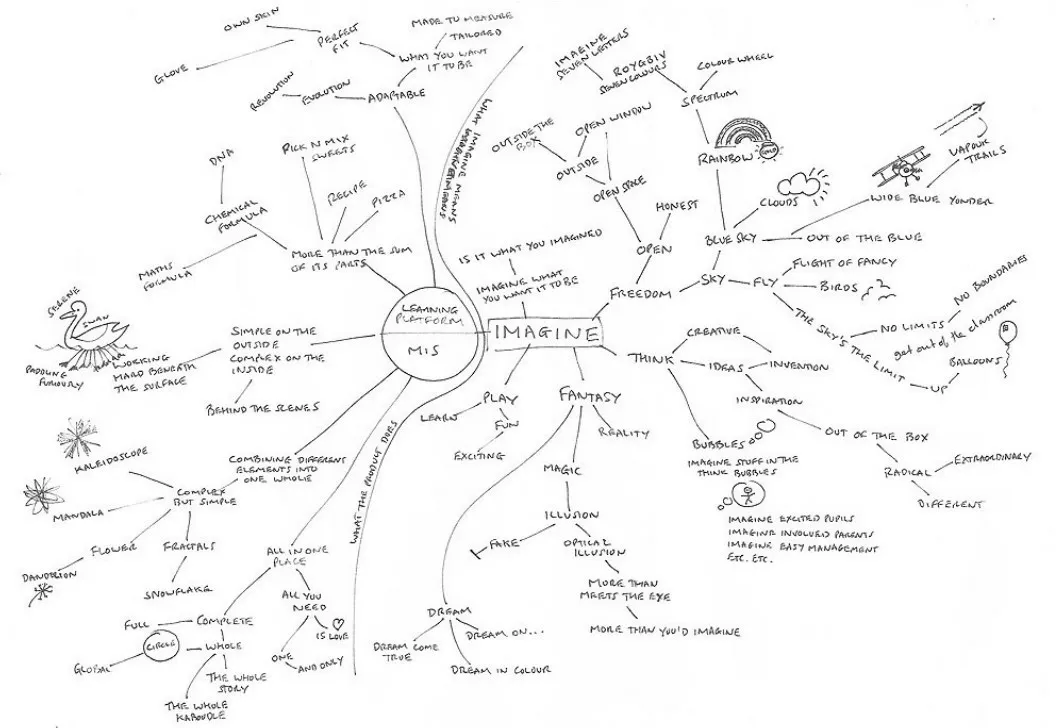 OWN SKIN
GLOVE
PERFECT
FIT
MADE TO MEASURE
TAILORED
WHAT YOU WANT
IT TO BE
REVOLUTION
EVOLUTION
ADAPTABLE
DNA
PICK N MIX
SWEETS
RECIPE
PIZZA
CHEMICAL
FORMULA
MATHS
FORMULA
MORE THAN THE SUM
OF ITS PARTS
LEARNING
PLATFORM
MIS
SERENE
SWAN
PADDLING
FURIOUSLY
WORKING
HARD BENEATH
THE SURFACE
SIMPLE ON THE
OUTSIDE
COMPLEX ON THE
INSIDE
BEHIND THE SCENES
KALEIDOSCOPE
COMBINING DIFFERENT
ELEMENTS INTO
ONE WHOLE
COMPLEX
BUT SIMPLE
MANDALA
FLOWER
DANDELION
FRACTALS
SNOWFLAKE
ALL IN ONE
PLACE
ALL YOU
NEED
IS LOVE
ONE
AND ONLY
FULL
COMPLETE
CIRCLE
WHOLE
GLOBAL
THE WHOLE
STORY
THE WHOLE
KABOUDLE
WHAT THE PRODUCT DOES
WHAT IMAGINE MEANS
IMAGINE
SEVEN LETTERS
ROYGBIV
SEVEN COLOURS
COLOUR WHEEL
SPECTRUM
OUTSIDE THE
BOX
OPEN WINDOW
OUTSIDE
OPEN SPACE
RAINBOW
GOLD
HONEST
OPEN
FREEDOM
IS IT WHAT YOU IMAGINED
IMAGINE WHAT
YOU WANT IT TO BE
IMAGINE
CLOUDS
BLUE SKY
OUT OF THE BLUE
WIDE BLUE YONDER
VAPOUR
TRAILS
SKY
FLY
FLIGHT OF FANCY
BIRDS
THE SKY'S THE LIMIT
NO LIMITS
NO BOUNDARIES
get out of the classroom
UP
BALLOONS
THINK
CREATIVE
IDEAS
INVENTION
INSPIRATION
OUT OF THE BOX
RADICAL
EXTRAORDINARY
DIFFERENT
BUBBLES
IMAGINE STUFF IN THE
THINK BUBBLES
IMAGINE EXCITED PUPILS
IMAGINE INVOLVED PARENTS
IMAGINE EASY MANAGEMENT
ETC. ETC.
PLAY
LEARN
FUN
EXCITING
FANTASY
REALITY
MAGIC
ILLUSION
FAKE
OPTICAL
ILLUSION
MORE THAN
MEETS THE EYE
MORE THAN YOU'D IMAGINE
DREAM
DREAM COME
TRUE
DREAM ON...
DREAM IN COLOUR